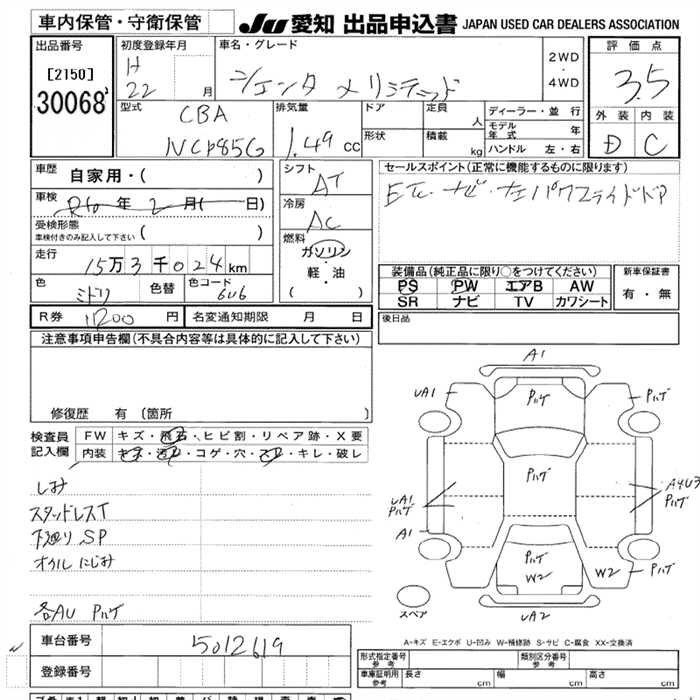 車内保管・守衛保管
JU 愛知 出品申込書 JAPAN USED CAR DEALERS ASSOCIATION
出品番号
[2150]
30068
初度登録年月
H
22 月
車名・グレード
シエンタ メリミテッド
2WD
・
4WD
評価点
3.5
外装 内装
D C
型式
CBA
NCP85G
排気量
1.49 cc
ドア
形状
定員
人
積載
kg
ディーラー・並行
モデル年式 年
ハンドル 左・右
車歴
自家用・( )
車検
R10年 2月( 日)
受検形態
車検付きのみ記入して下さい ( )
走行
15万3千024km
色
ミドリ
色替
色コード
6U6
シフト
AT
冷房
AC
燃料
ガソリン
軽・油
( )
セールスポイント(正常に機能するものに限ります)
ETC・ナビ・左パワースライドドア
装備品(純正品に限り〇をつけてください)
PS PW エアB AW
SR ナビ TV カワシート
新車保証書
有・無
R券 円
名変通知期限 月 日
後日品
注意事項申告欄(不具合内容等は具体的に記入して下さい)
修復歴 有 (箇所 )
検査員
記入欄
FW キズ・飛石・ヒビ割・リペア跡・X要
内装 キズ・汚れ・コゲ・穴・スレ・キレ・破レ
しみ
スタッドレスT
下廻りSP
オイルにじみ
各AU Pハゲ
A1
UA1
Pハゲ
Pハゲ
Pハゲ
UA1
Pハゲ
A4U3
Pハゲ
A1
Pハゲ
W2
W2
Pハゲ
UA2
スペア
A-キズ E-エクボ U-凹み W-補修跡 S-サビ C-腐食 XX-交換済
車台番号
5012619
登録番号
形式指定番号
参考
類別区分番号
参考
車庫証明用
参考
長さ cm
幅 cm
高さ cm